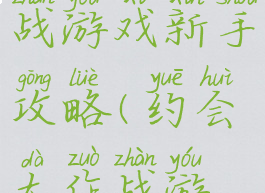 zhàn yóu xì xīn shǒu
战游戏新手
gōng lüè yuē huì
攻略(约会
dà zuò zhàn yóu
大作战游